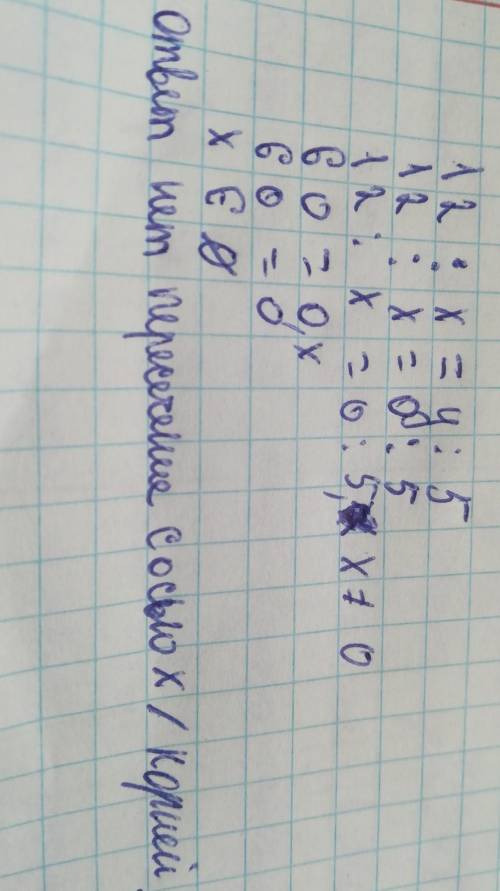 12 : x = y : 5
12 : x = 0 : 5
12 : x = 0 : 5, x ≠ 0
60 = 0, x
60 = 0
x ∈ ∅
ответ нет пересечение с осью x / корней